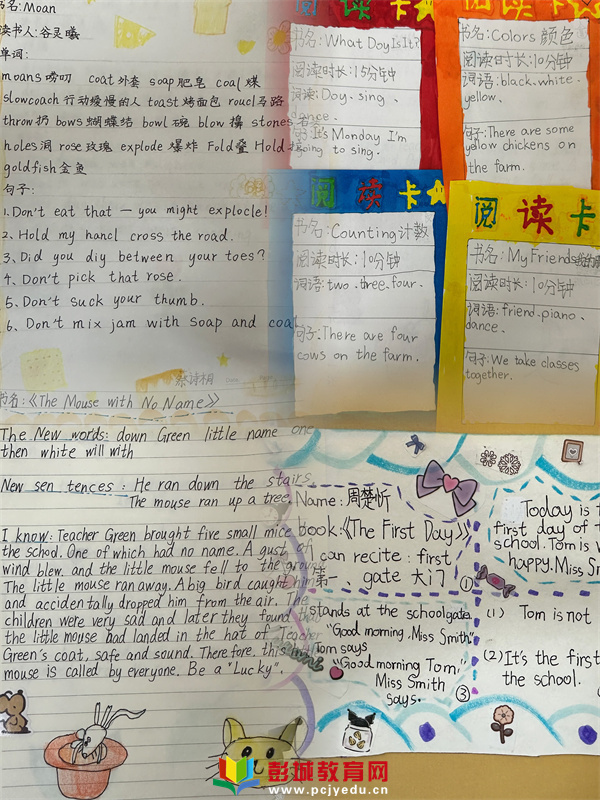 书名:Moan
读书人:谷灵曦
单词:
moans唠叨 coat外套 soap肥皂 coal煤
slowcoach行动缓慢的人 toast烤面包 roucl马路
throw扔 bows蝴蝶结 bowl碗 blow擤 stones
holes洞 rose玫瑰 explode爆炸 Fold叠 Hold
goldfish金鱼
句子:
1. Don't eat that — you might explocle!
2. Hold my hancl cross the road.
3. Did you diy between your toes?
4. Don't pick that rose.
5. Don't suck your thumb.
6. Don't mix jam with soap and coal
阅读卡
书名:What Doy Is It?
阅读时长:15分钟
词语:Doy、sing、
句:It's Monday I'm
going to sing.
阅读卡
书名:Colors 颜色
阅读时长:10分钟
词语:black、white、
yellow、
句子:There are some
yellow chickens on
the farm.
阅读卡
书名:Counting计数
阅读时长:10分钟
词语:two、three、four、
句子:There are four
cows on the farm.
阅读卡
书名:My Friends
阅读时长:10分钟
词语:friend、piano、
dance、
句子:We take classes
together.
书名:《The Mouse with No Name》
The New words: down Green little name one
then white will with
New sen tences: He ran down the stairs
The mouse ran up a tree.
I know: Teacher Green brought five small mice
the school. One of which had no name. A gust of
wind blew. and the little mouse fell to the ground
The little mouse ran away. A big bird caught him
and accidentally dropped him from the air. The
children were very sad and later they found that
the little mouse had landed in the hat of Teacher
Green's coat, safe and sound. Therefore, this
mouse is called by everyone. Be a "Lucky".
Name:周楚忻
book:《The First Day》
I can recite: first
第一、gate 大门 ①
Today is t
first day of t
school. Tom is v
happy. Miss Sm
stands at the school gate.
"Good morning, Miss Smith"
Tom says
"Good morning Tom,"
Miss Smith
says. ③
(1) Tom is not
(2) It's the first
the school.
彭城教育网
www.pcjyedu.cn